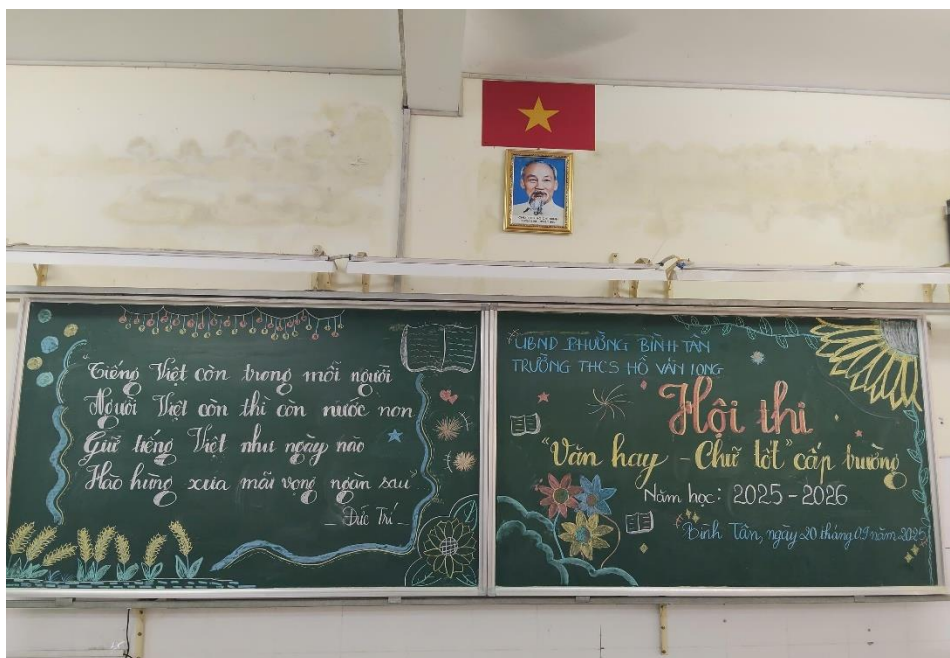 "Tiếng Việt còn trong mỗi người
Người Việt còn thì còn nước non
Giữ tiếng Việt như ngày nào
Hào hùng xưa mãi vọng ngàn sau"
_ Đức Trí _
UBND PHƯỜNG BÌNH TÂN
TRƯỜNG THCS HỒ VĂN LONG
Hội thi
"Văn hay - Chữ tốt" cấp trường
Năm học: 2025 - 2026
Bình Tân, ngày 20 tháng 09 năm 2025